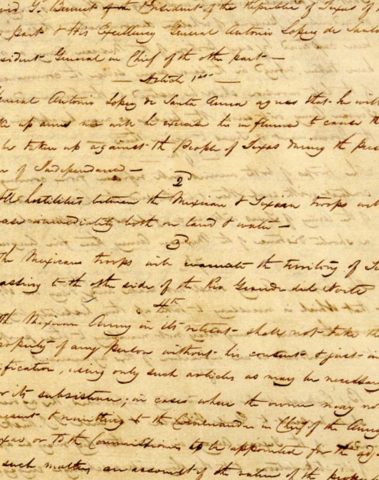 vid G. Burnet of the President of the Republic of Texas of
part & His Excellency General Antonio Lopez de Santa
sident General in Chief of the other part—
— Article 1st —
General Antonio Lopez de Santa Anna agrees that he will
take up arms nor will he exercise his influence to cause the
to be taken up against the People of Texas during the pres
of Independence—
2
All hostilities between the Mexican & Texian troops will
cease immediately both on land & water—
3
The Mexican troops will evacuate the territory of
passing to the other side of the Rio Grande del Norte
4th
The Mexican Army in its retreat shall not take the
property of any person without his consent & just in
ification, using only such articles as may be necessary
for its subsistence, in cases where the owner may not
present & remitting to the Commander in Chief of the Army
Texas or to the Commissioners to be appointed for the adj
such matters an account of the value of the property